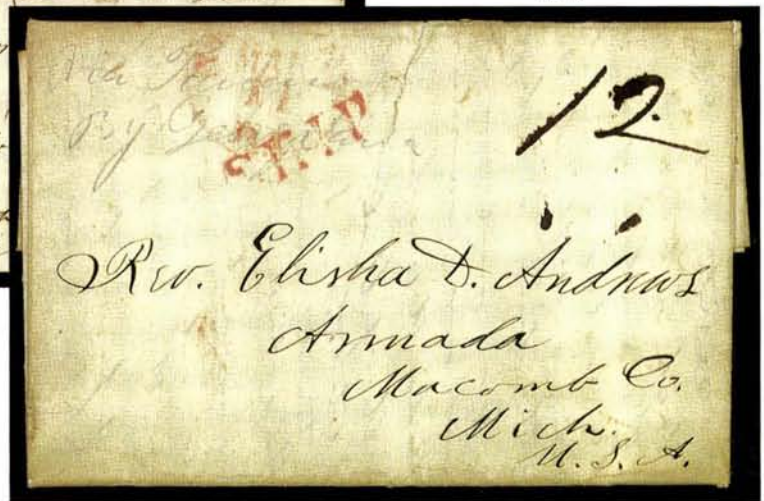 Via
By
SHIP
12
Rev. Elisha D. Andrews
Armada
Macomb Co.
Mich.
U. S. A.